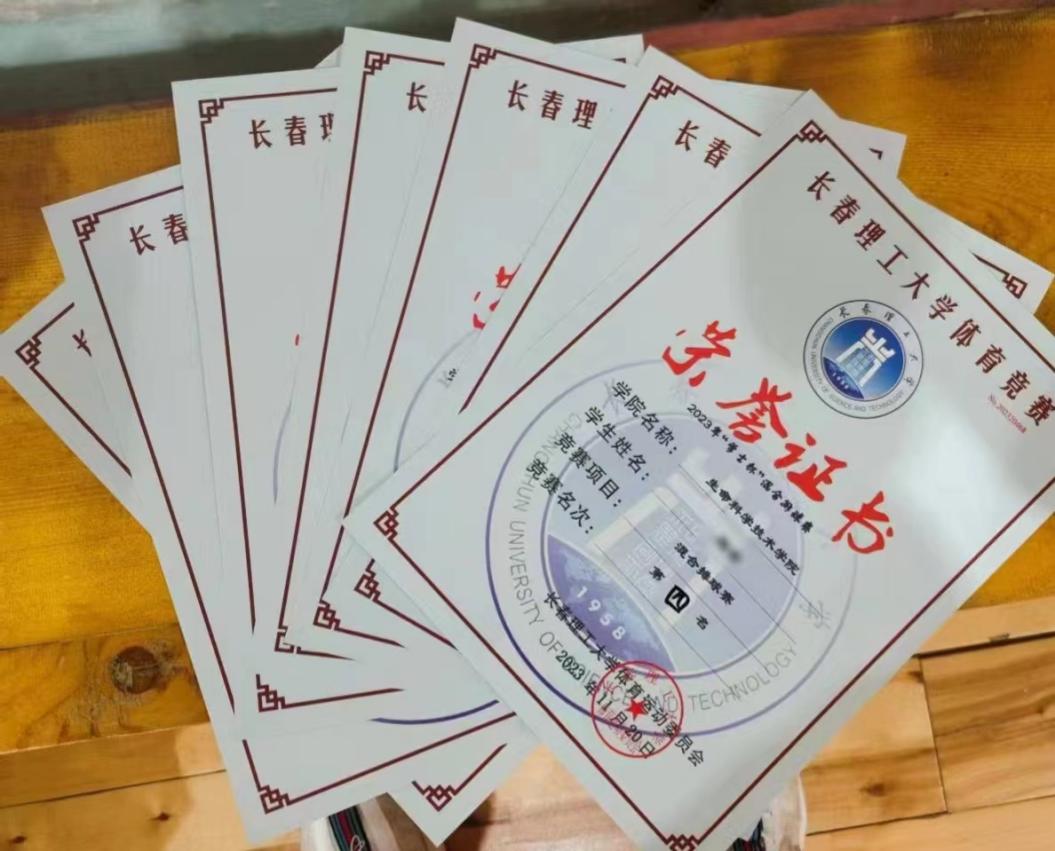 长
长春
长春
长
长春理
长春
荣
长春理工大学体育竞赛
长春理工大学
CHANGCHUN UNIVERSITY OF SCIENCE AND TECHNOLOGY
荣誉证书
2023年"学士杯"混合排球赛
学院名称: 生命科学技术学院
学生姓名:
竞赛项目: 混合排球赛
竞赛名次: 第四名
1958
CHUN UNIVERSITY OF SCIENCE AND TECHNOLOGY
长春理工大学体育运动委员会
2023年11月20日